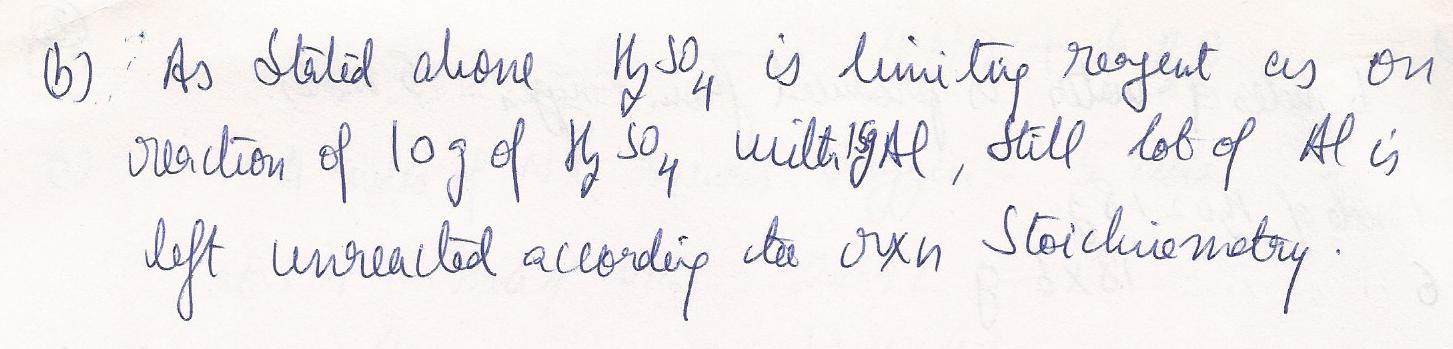 (b) As stated above H₂SO₄ is limiting reagent as on
reaction of 10g of H₂SO₄ with 15g Al, still lot of Al is
left unreacted according to rxn Stoichiometry.